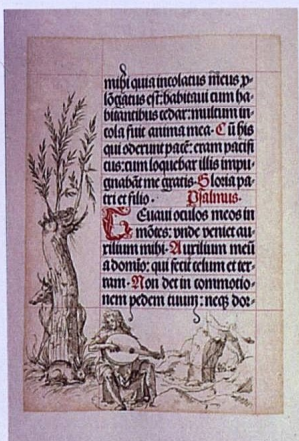 mihi quia incolatus meus p-
lõgatus est: habitaui cum ha-
bitantibus cedar: multum in-
cola fuit anima mea. Cũ his
qui oderunt pacẽ: eram pacifi
cus: cum loquebar illis impu-
gnabãt me gratis. Gloria pa-
tri et filio. Psalmus.
Leuaui oculos meos in
mõtes: vnde veniet au-
xilium mihi. Auxilium meũ
a domĩo: qui fecit celum et ter-
ram. Non det in commotio-
nem pedem tuum: neqꝫ dor-